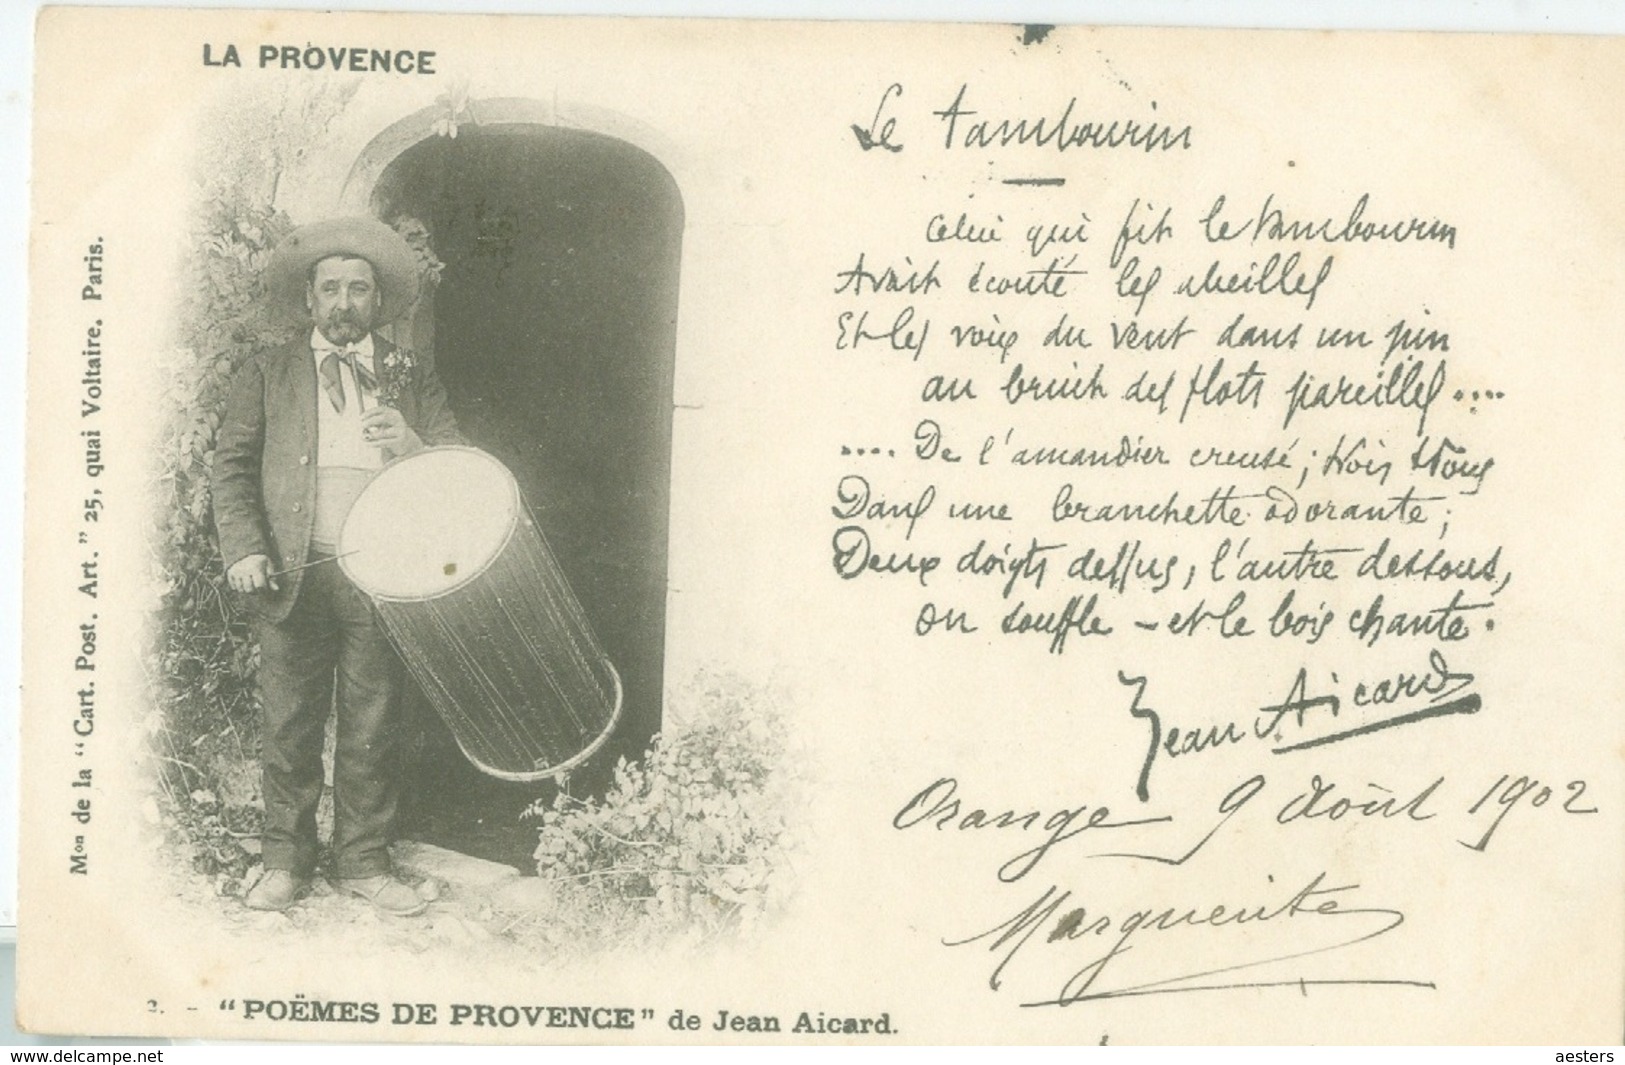 LA PROVENCE
Mon de la “Cart. Post. Art.” 25, quai Voltaire. Paris.
Le tambourin
Celui qui fit le tambourin
Avait écouté les abeilles
Et les voix du vent dans un pin
au bruit des flots pareilles ....
.... De l'amandier creusé; trois trous
Dans une branchette odorante;
Deux doigts dessus, l'autre dessous,
on souffle – et le bois chante.
Jean Aicard
Orange 9 Août 1902
Marguerite
2. - “POËMES DE PROVENCE” de Jean Aicard.
www.delcampe.net
aesters